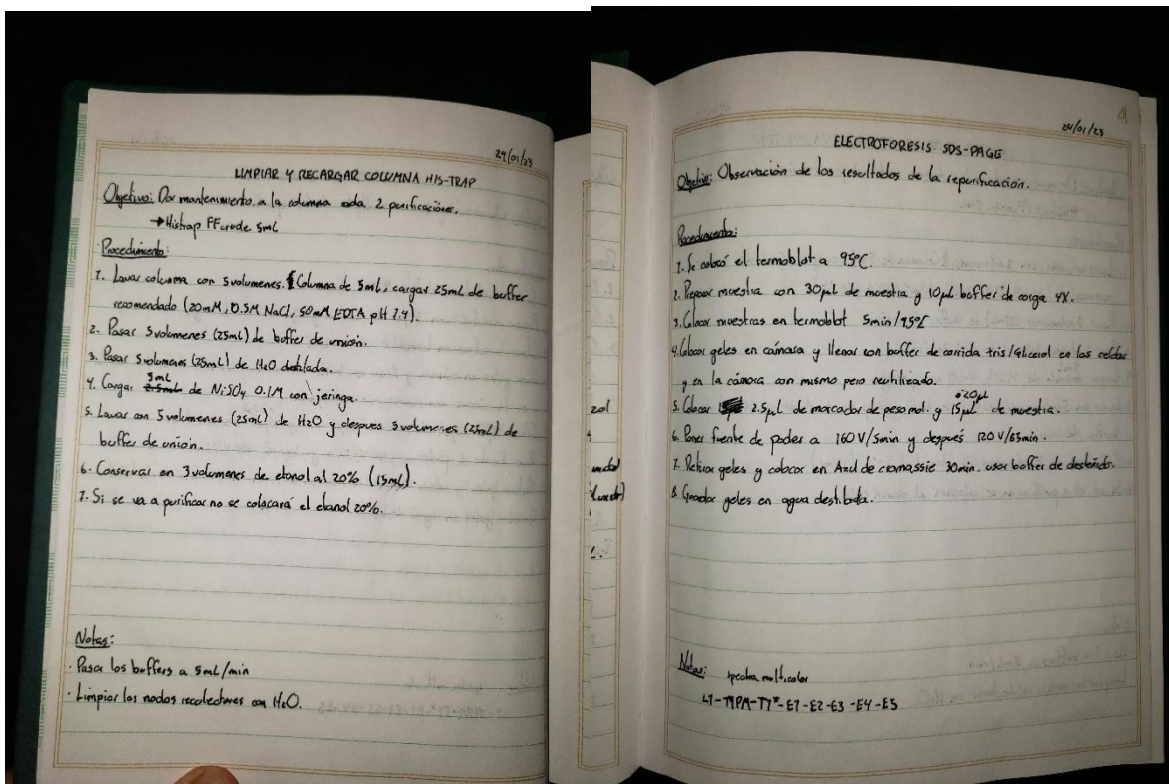 24/01/23
LIMPIAR Y RECARGAR COLUMNA HIS-TRAP
Objetivo: Dar mantenimiento a la columna cada 2 purificaciones.
→Histrap FF crude 5mL
Procedimiento:
1. Lavar columna con 5 volumenes. Columna de 5mL, cargar 25mL de buffer
recomendado (20mM, 0.5M NaCl, 50mM EDTA pH 7.4).
2. Pasar 5 volumenes (25mL) de buffer de unión.
3. Pasar 5 volumenes (25mL) de H2O destilada.
4. Cargar 5mL de NiSO4 0.1M con jeringa.
5. Lavar con 5 volumenes (25mL) de H2O y despues 5 volumenes (25mL) de
buffer de union.
6. Conservar en 3 volumenes de etanol al 20% (15mL).
7. Si se va a purificar no se colocará el etanol 20%.
Notas:
· Pasar los buffers a 5mL/min
· Limpiar los nodos recolectores con H2O.
24/01/23
ELECTROFORESIS SDS-PAGE
Objetivo: Observación de los resultados de la repurificación.
Procedimiento:
1. Se colocó el termoblot a 95°C.
2. Preparar muestra con 30µL de muestra y 10µL buffer de carga 4X.
3. Colocar muestras en termoblot 5min/95°C
4. Colocar geles en cámara y llenar con buffer de corrida tris/Glicerol en las celdas
y en la cámara con mismo pero reutilizado.
5. Colocar 2.5µL de marcador de peso mol. y 15µL ó 20µL de muestra.
6. Poner fuente de poder a 160V/5min y después 120V/65min.
7. Retirar geles y colocar en Azul de comassie 30min, usar buffer de desteñido.
8. Guardar geles en agua destilada.
Notas: spectra multicolor
-E2-E3-E4-E5